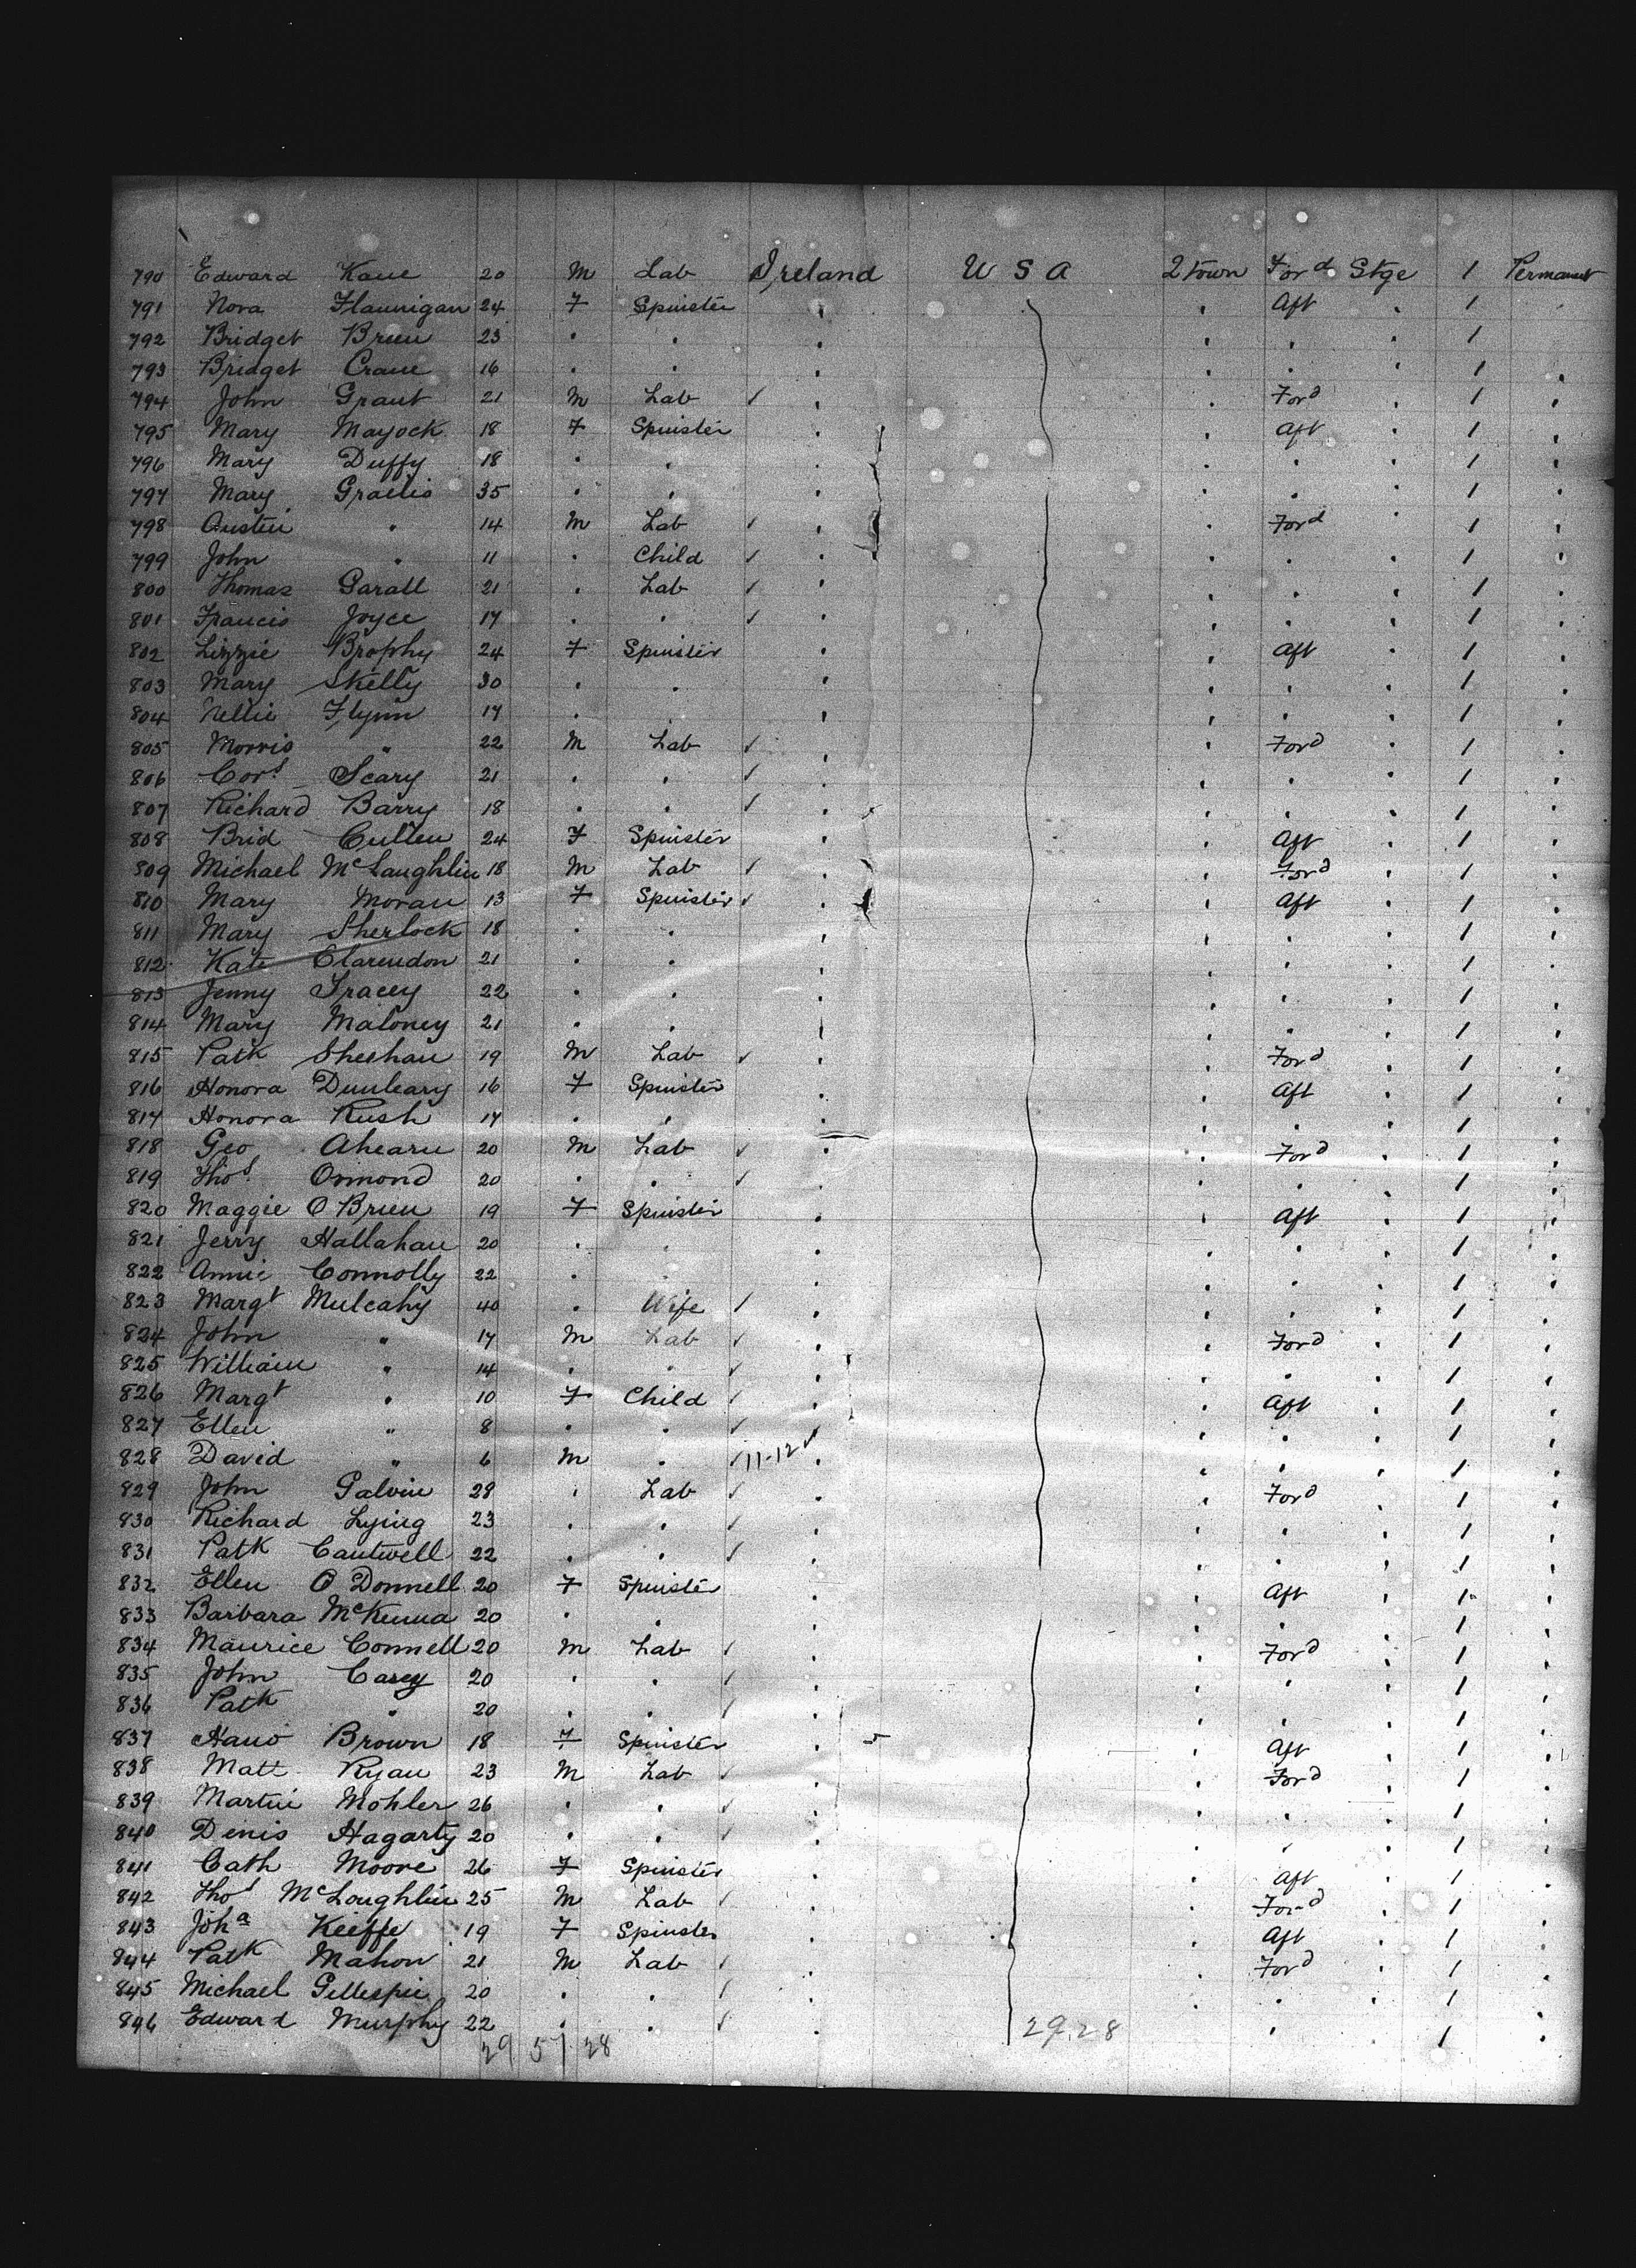 790 Edward Kane 20 M Lab Ireland U S A 2 Town Ford Stge 1 Permanent
791 Nora Flannigan 24 F Spinster " " Aft " 1
792 Bridget Brien 23 " " " " " " 1 "
793 Bridget Crane 16 " " " " " " 1 "
794 John Grant 21 M Lab ✓ " " Ford " 1 "
795 Mary Mayock 18 F Spinster " " Aft " 1 "
796 Mary Duffy 18 " " " " " " 1 "
797 Mary 35 " " " " " " 1 "
798 Austin " 14 M Lab ✓ " " Ford " 1 "
799 John " 11 " Child ✓ " " " " 1 "
800 Thomas Garall 21 " Lab ✓ " " " " 1 "
801 Francis Joyce 17 " " ✓ " " " " 1 "
802 Lizzie Brophy 24 F Spinster " " Aft " 1 "
803 Mary Skelly 30 " " " " " " 1 "
804 Nellie Flynn 17 " " " " " " 1 "
805 Morris " 22 M Lab ✓ " " Ford " 1 "
806 Cors Scary 21 " " ✓ " " " " 1 "
807 Richard Barry 18 " " ✓ " " " " 1 "
808 Brid Cullen 24 F Spinster " " Aft " 1 "
809 Michael McLaughlin 18 M Lab ✓ " " Ford " 1 "
810 Mary Moran 13 F Spinster ✓ " " Aft " 1 "
811 Mary Sherlock 18 " " " " " " 1 "
812 Kate Clarendon 21 " " " " " " 1 "
813 Jenny Tracey 22 " " " " " " 1 "
814 Mary Maloney 21 " " " " " " 1 "
815 Patk Sheehan 19 M Lab ✓ " " Ford " 1 "
816 Honora Dunleavy 16 F Spinster " " Aft " 1 "
817 Honora Rush 17 " " " " " " 1 "
818 Geo Ahearn 20 M Lab ✓ " " Ford " 1 "
819 Thos Ormond 20 " " ✓ " " " " 1 "
820 Maggie O Brien 19 F Spinster " " Aft " 1 "
821 Jerry Hallahan 20 " " " " " " 1 "
822 Annie Connolly 22 " " " " " 1 "
823 Margt Mulcahy 40 " Wife ✓ " " " " 1 "
824 John " 17 M Lab ✓ " " Ford " 1 "
825 William " 14 " " ✓ " " " " 1 "
826 Margt " 10 F Child ✓ " " Aft " 1 "
827 Ellen " 8 " " ✓ " " " " 1 "
828 David " 6 M " ✓ 11-12 ✓ " " " " 1 "
829 John Galvin 28 " Lab ✓ " " Ford " 1 "
830 Richard Lying 23 " " ✓ " " " " 1 "
831 Patk Cantwell 22 " " ✓ " " " " 1 "
832 Ellen O Donnell 20 F Spinster " " Aft " 1 "
833 Barbara McKenna 20 " " " " " " 1 "
834 Maurice Connell 20 M Lab ✓ " " Ford " 1 "
835 John Casey 20 " " ✓ " " " " 1 "
836 Patk " 20 " " ✓ " " " " 1 "
837 Brown 18 F Spinster " " Aft " 1 "
838 Matt Ryan 23 M Lab ✓ " " Ford " 1 "
839 Martin Mohler 26 " " ✓ " " " " 1 "
840 Denis Hagarty 20 " " ✓ " " " " 1 "
841 Cath Moore 26 F Spinster " " Aft " 1 "
842 Thos McLoughlin 25 M Lab ✓ " " Ford " 1 "
843 Joha Keiffe 19 F Spinster " " Aft " 1 "
844 Patk Mahon 21 M Lab ✓ " " Ford " 1 "
845 Michael Gillespie 20 " " ✓ " " " " 1 "
846 Edward Murphy 22 " " ✓ " 29.28 " " 1 "
29 57 28